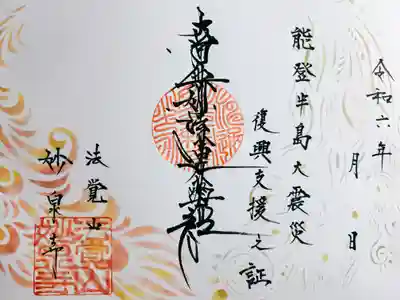 令和六年 月 日
能登半島大震災
復興支援之証
南無妙法蓮華経
法覚山
妙泉寺